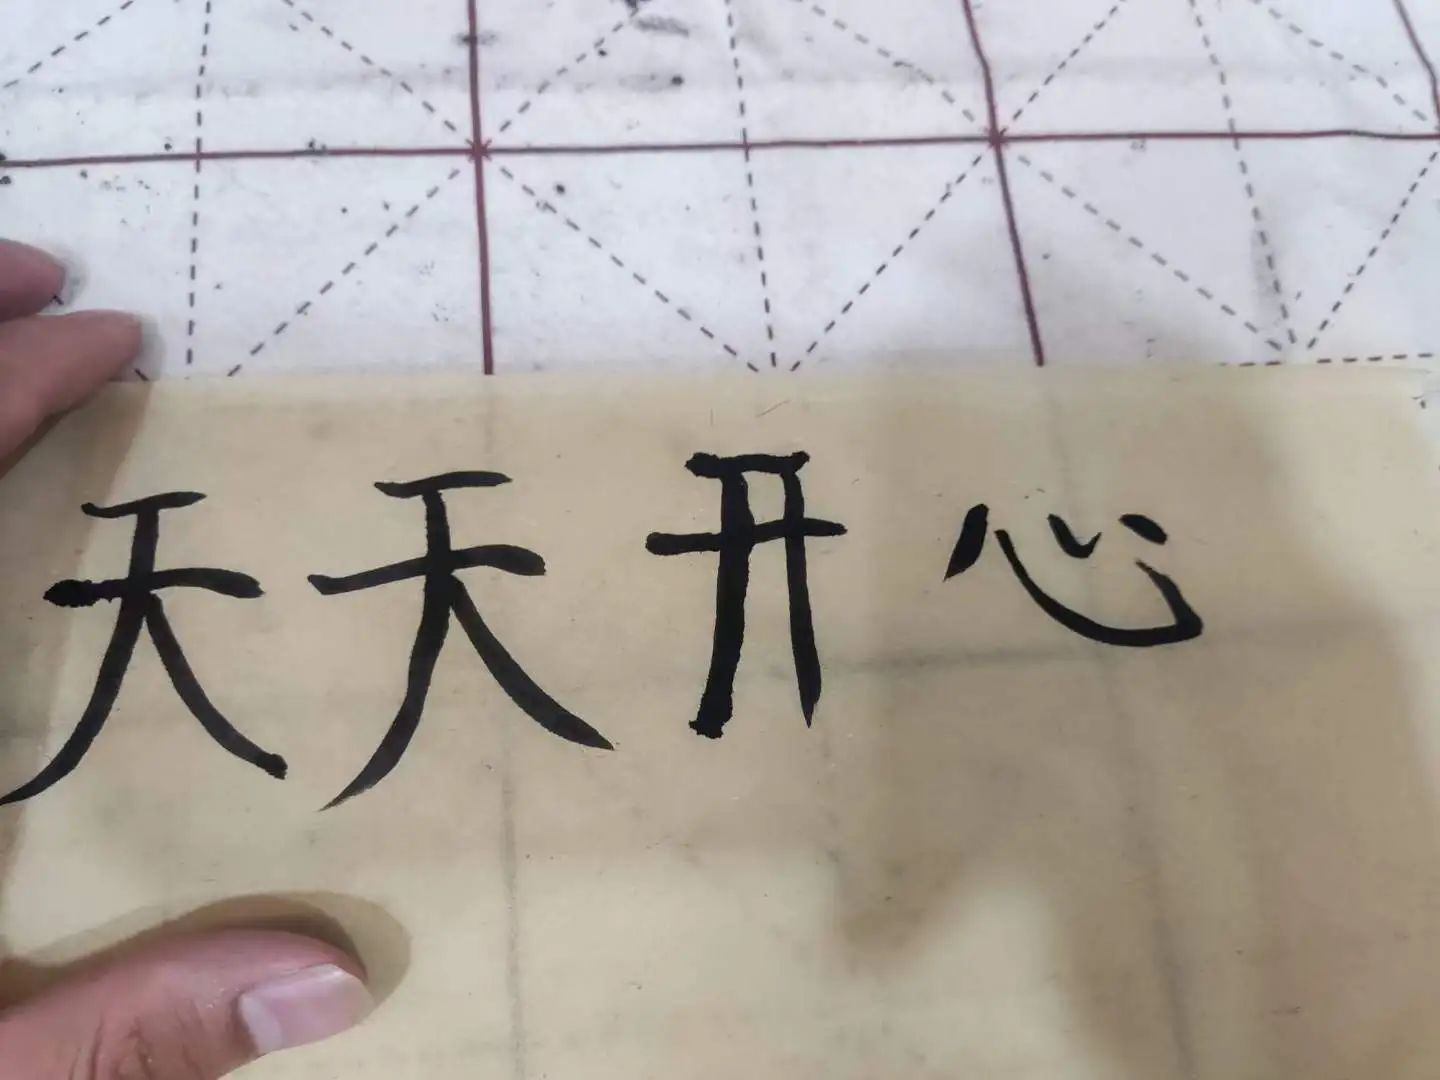 天天开心